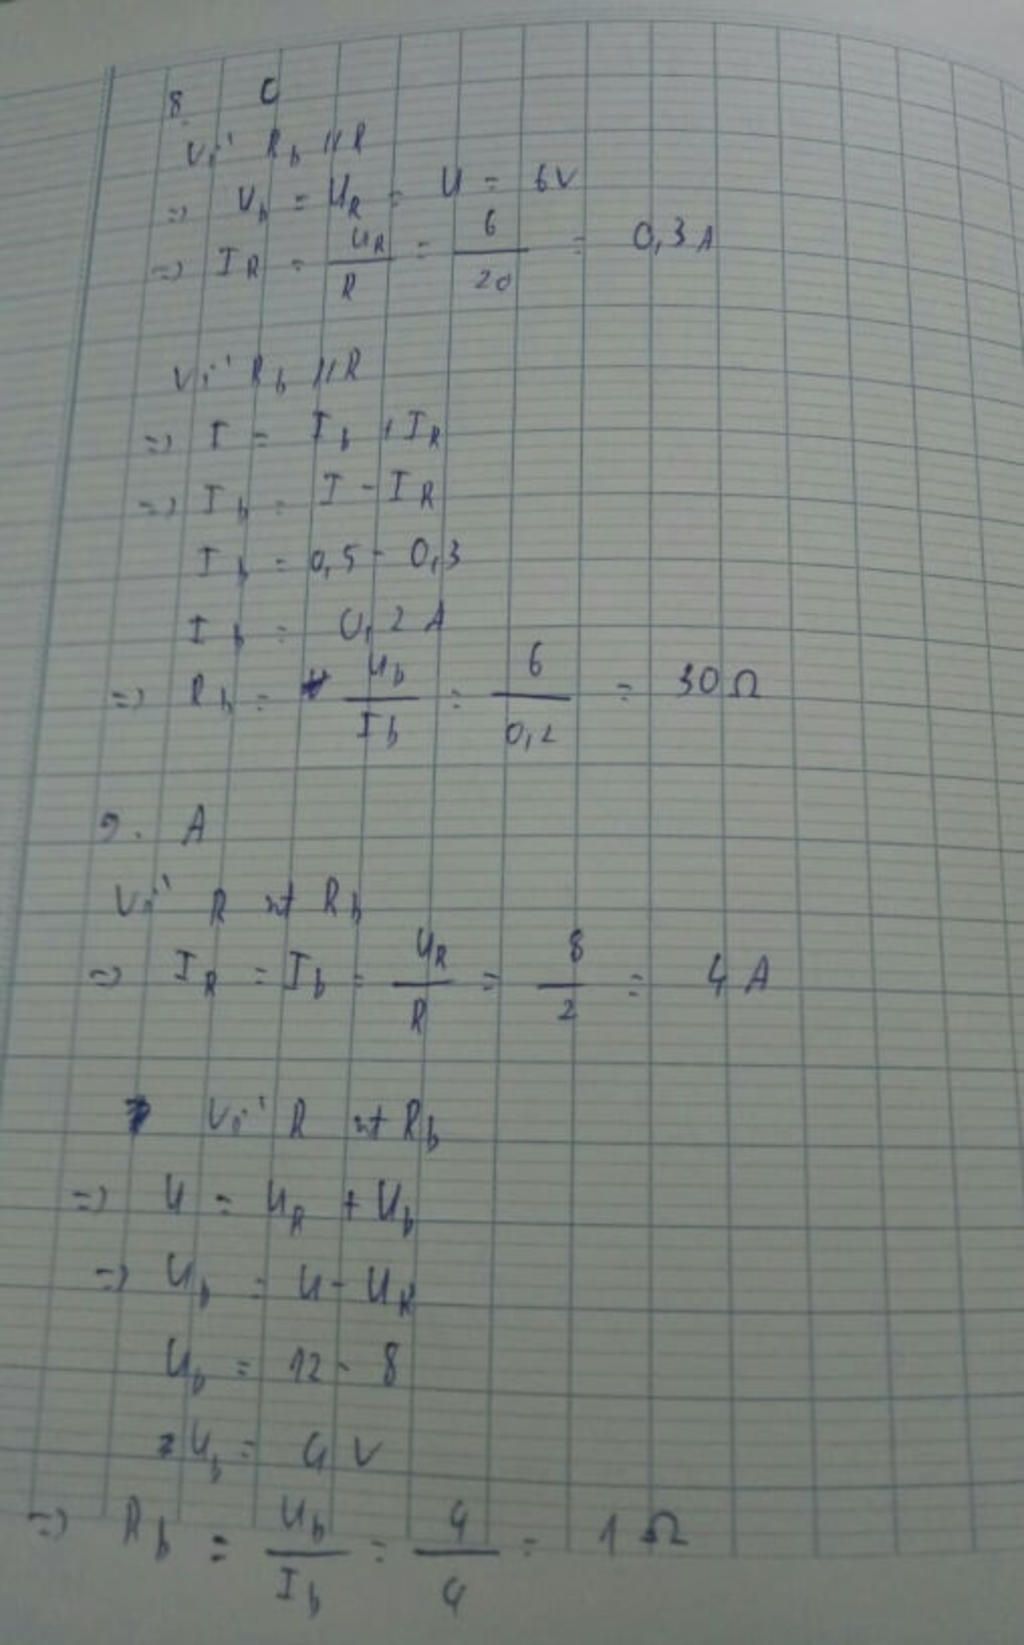 8. C
Vì R_b // R
=> U_b = U_R = U = 6V
=> I_R = U_R / R = 6 / 20 = 0,3 A
Vì R_b // R
=> I = I_b + I_R
=> I_b = I - I_R
I_b = 0,5 - 0,3
I_b = 0,2 A
=> R_b = U_b / I_b = 6 / 0,2 = 30 Ω
9. A
Vì R nt R_b
=> I_R = I_b = U_R / R = 8 / 2 = 4 A
Vì R nt R_b
=> U = U_R + U_b
=> U_b = U - U_R
U_b = 12 - 8
U_b = 4 V
=> R_b = U_b / I_b = 4 / 4 = 1 Ω